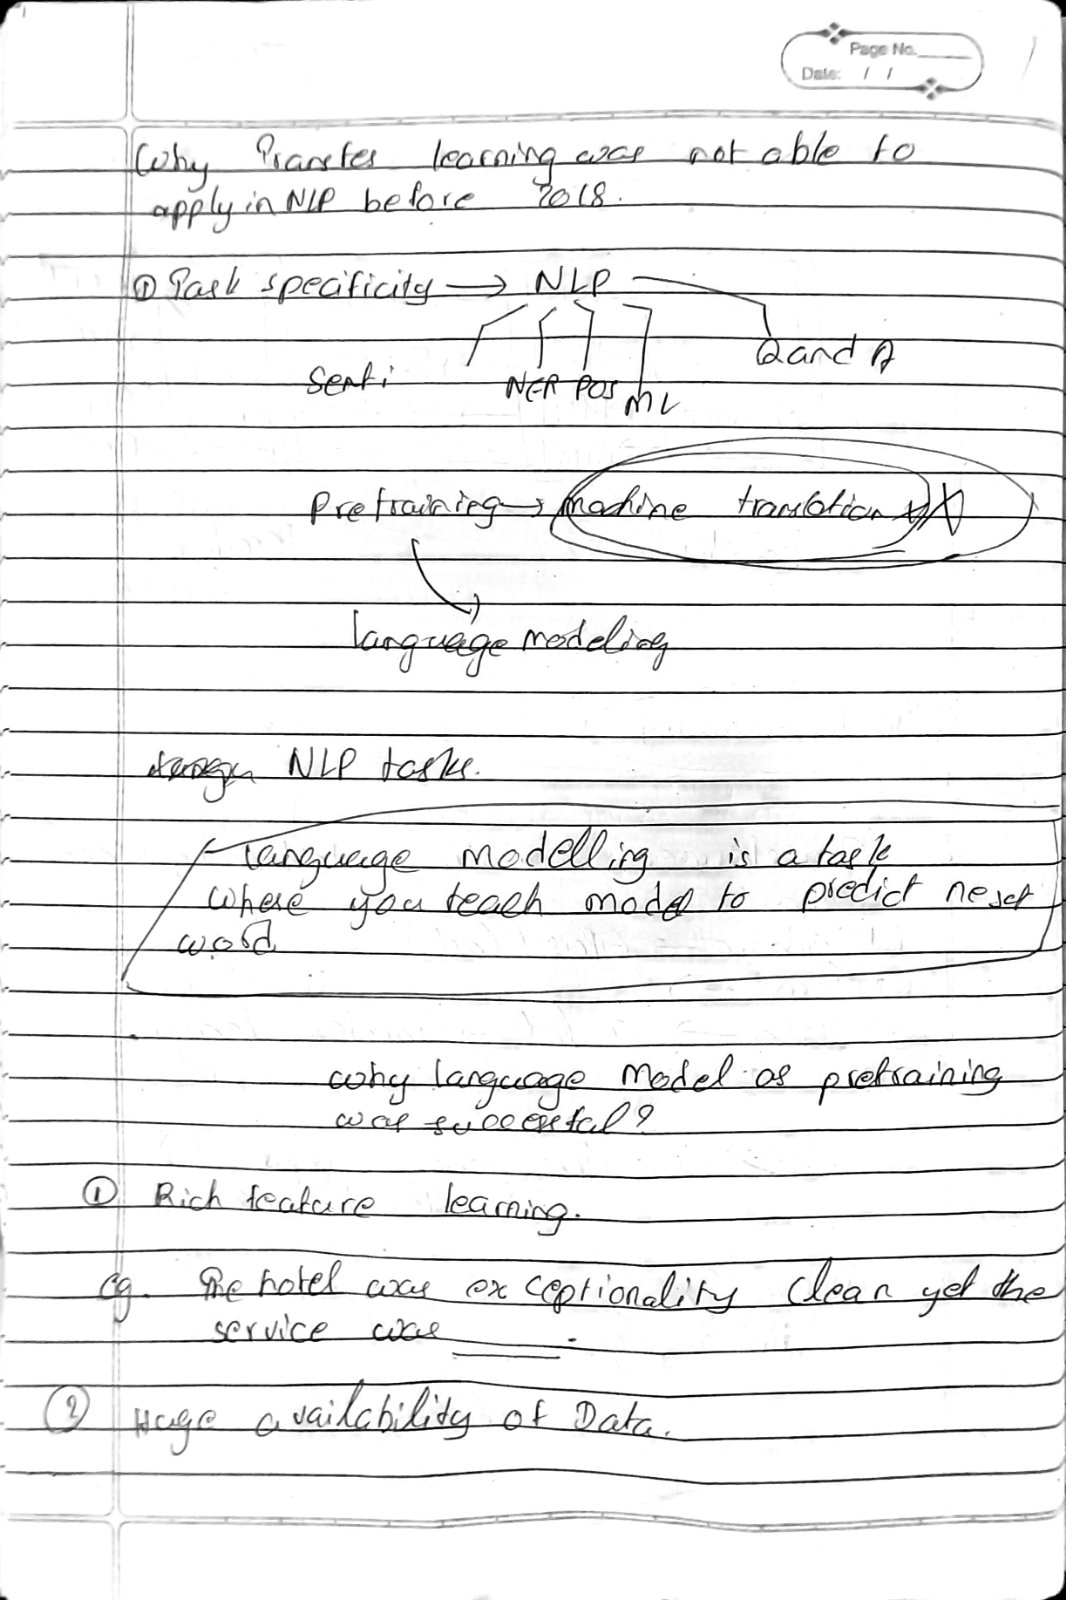 Page No.
Date: / /
Why Transfer learning was not able to
apply in NLP before 2018.
① Task specificity → NLP
Q and A
Senti NER POS ML
Pretraining → machine translation
language modeling
NLP tasks.
language modelling is a task
where you teach model to predict next
word
why language Model as pretraining
was successful?
① Rich feature learning.
eg. The hotel was exceptionality clean yet the
service was ____.
② Huge availability of Data.